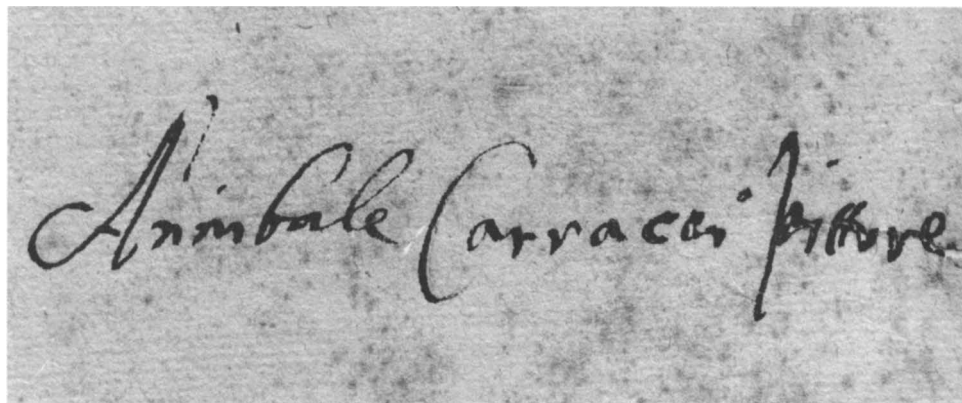 Annibale Carracci Pittore